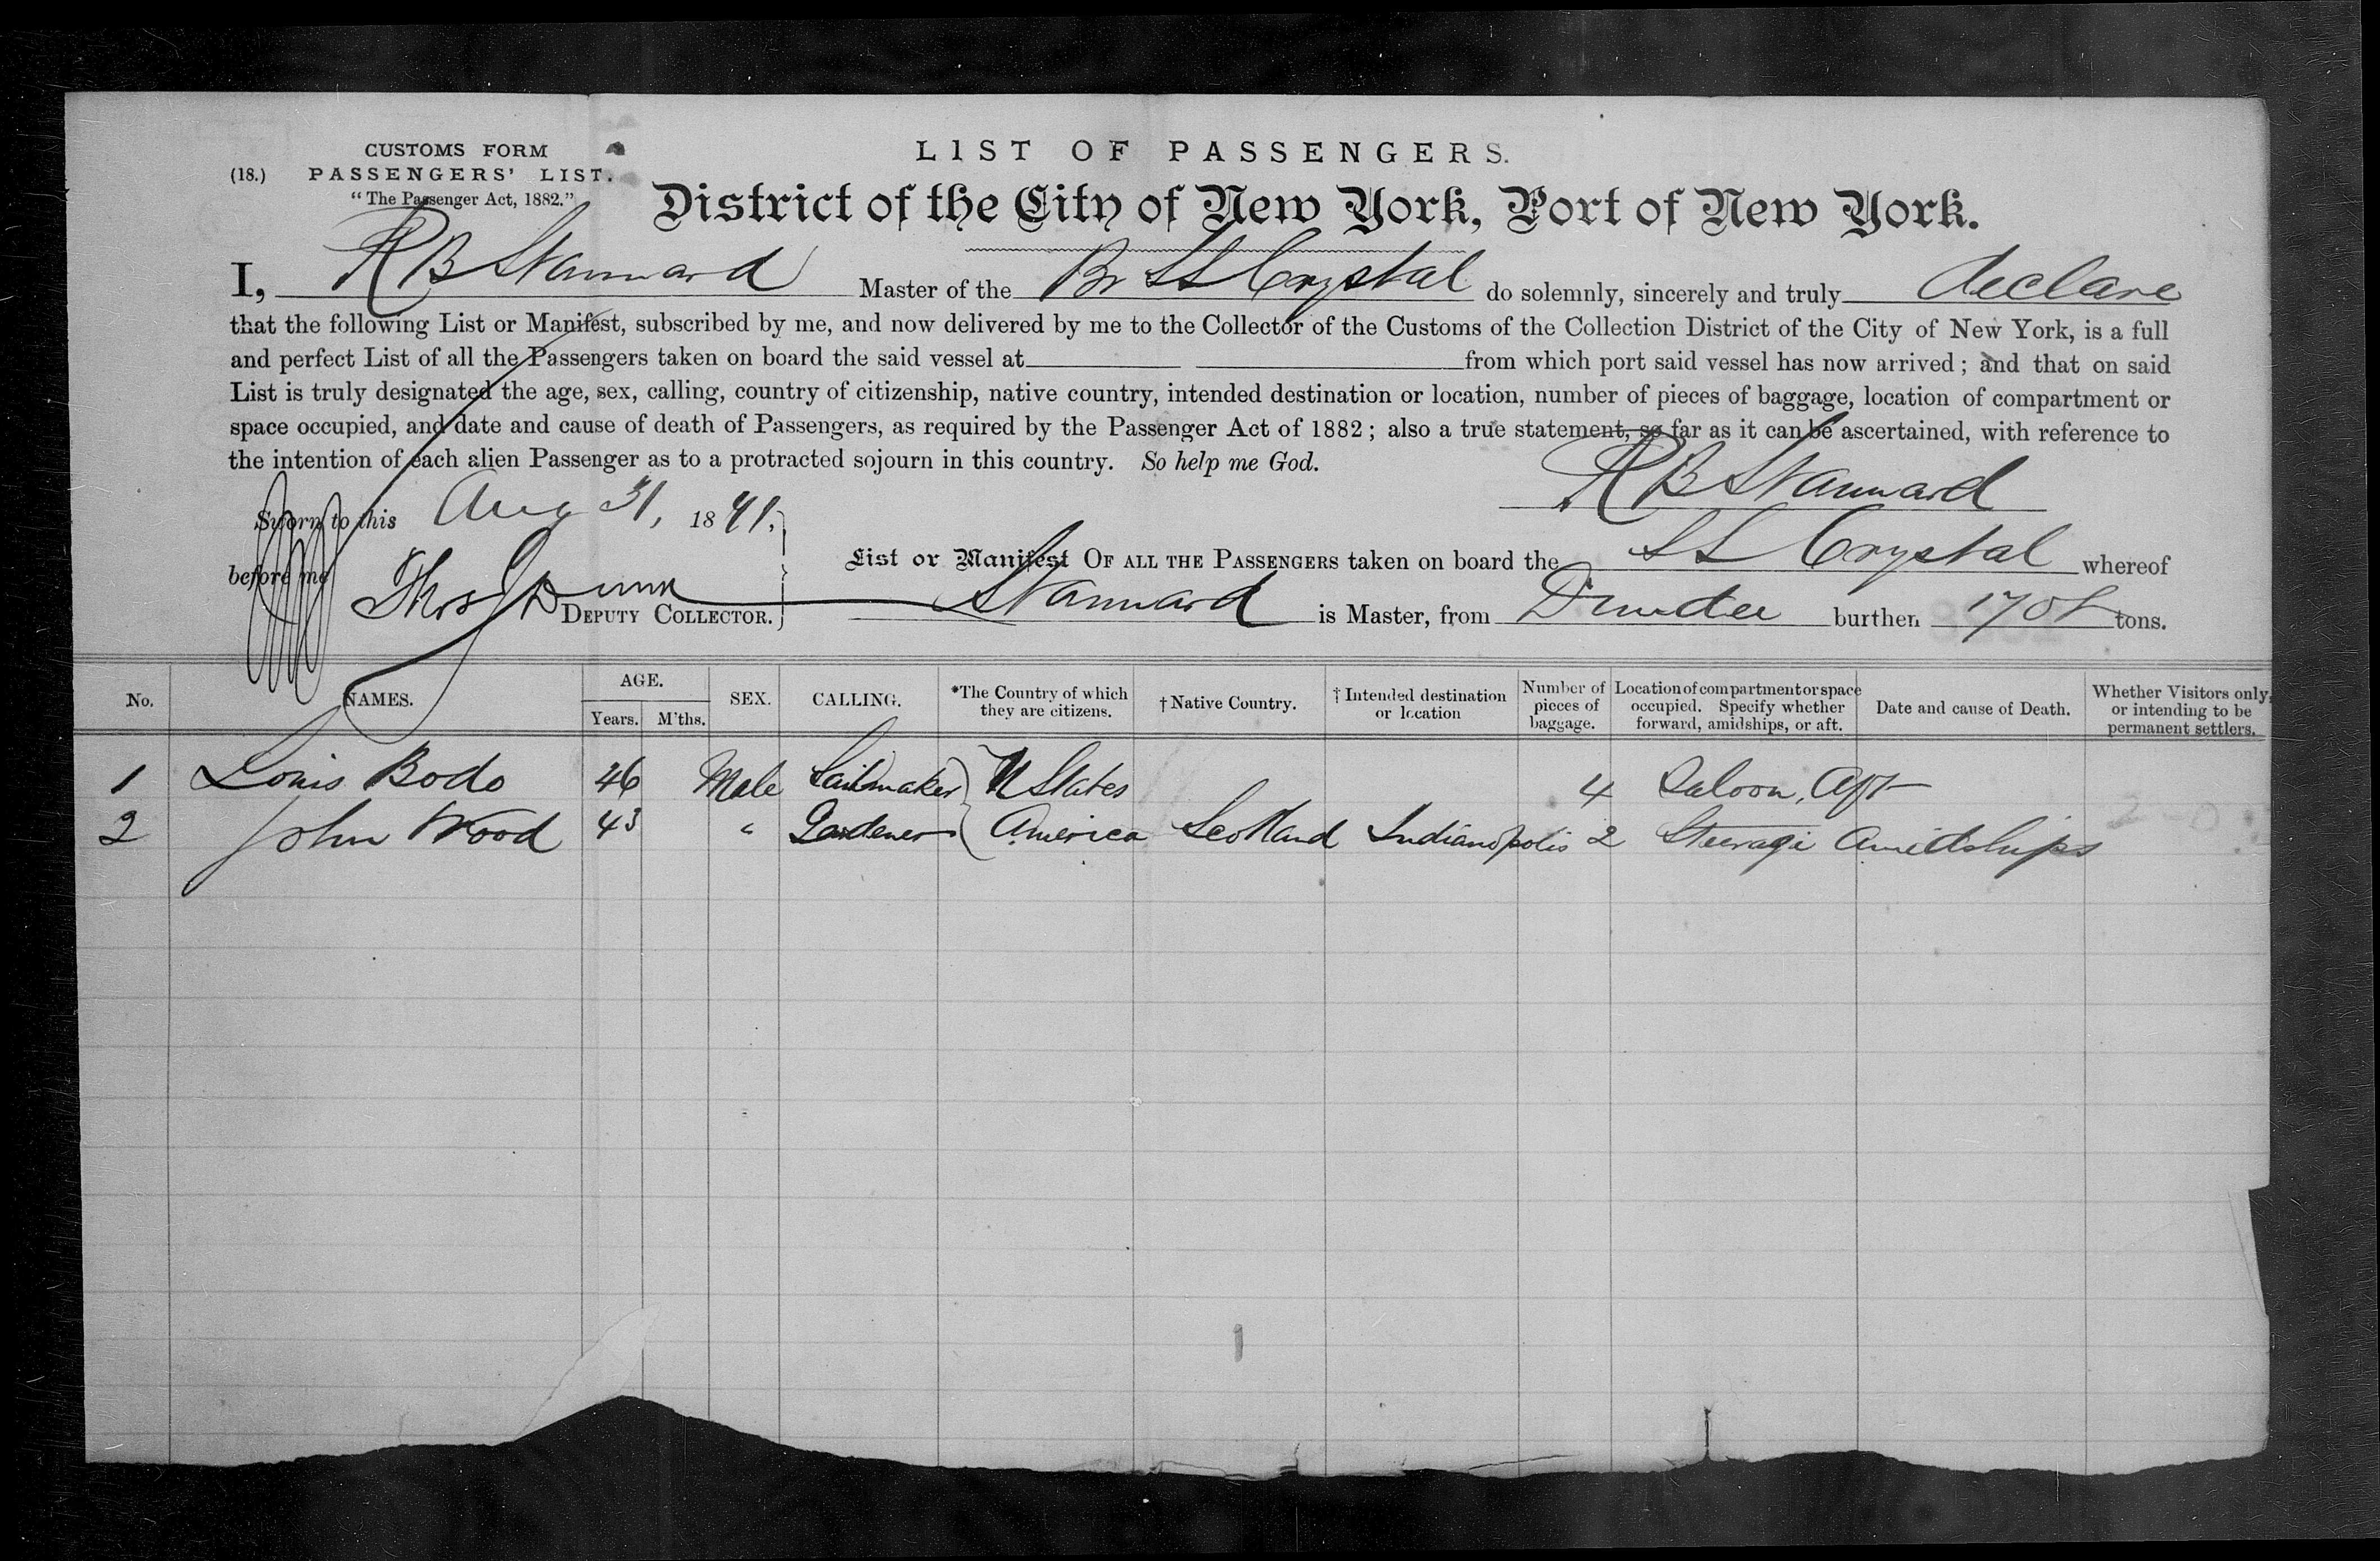 CUSTOMS FORM
(18.) PASSENGERS' LIST.
"The Passenger Act, 1882."
LIST OF PASSENGERS.
District of the City of New York, Port of New York.
I, R B Stannard Master of the Br SS Crystal do solemnly, sincerely and truly declare
that the following List or Manifest, subscribed by me, and now delivered by me to the Collector of the Customs of the Collection District of the City of New York, is a full
and perfect List of all the Passengers taken on board the said vessel at from which port said vessel has now arrived; and that on said
List is truly designated the age, sex, calling, country of citizenship, native country, intended destination or location, number of pieces of baggage, location of compartment or
space occupied, and date and cause of death of Passengers, as required by the Passenger Act of 1882; also a true statement, so far as it can be ascertained, with reference to
the intention of each alien Passenger as to a protracted sojourn in this country. So help me God.
R B Stannard
Sworn to this Aug 31, 1891.
before me
Thos Dunn
DEPUTY COLLECTOR.
List or Manifest OF ALL THE PASSENGERS taken on board the SS Crystal whereof
Stannard is Master, from Dundee burthen 1708 tons.
No. NAMES. AGE. Years. M'ths. SEX. CALLING. *The Country of which they are citizens. †Native Country. †Intended destination or location Number of pieces of baggage. Location of compartment or space occupied. Specify whether forward, amidships, or aft. Date and cause of Death. Whether Visitors only, or intending to be permanent settlers.
1 Louis Bodo 46 Male Sailmaker U States 4 Saloon, Aft
2 John Wood 43 " Gardener America Scotland Indianopolis 2 Steerage Amidships